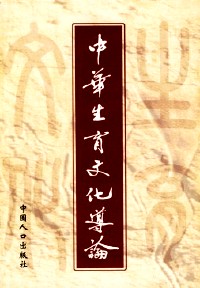 中華生育文化導論
中國人口出版社